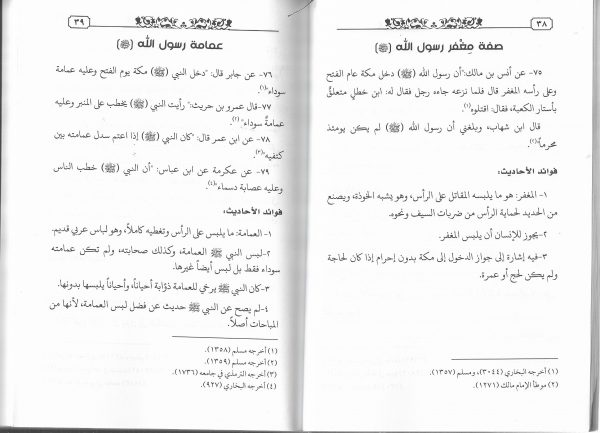 ٣٨
صفة مِغْفر رسول الله (ﷺ)
٧٥- عن أنس بن مالك:"أن رسول الله (ﷺ) دخل مكة عام الفتح
وعلى رأسه المغفر قال فلما نزعه جاءه رجل فقال له: ابن خطلٍ متعلقٌ
بأستار الكعبة، فقال: اقتلوه"(١).
قال ابن شهاب، وبلغني أن رسول الله (ﷺ) لم يكن يومئذ
محرماً"(٢).
فوائد الأحاديث:
١- المغفر: هو ما يلبسه المقاتل على الرأس، وهو يشبه الخوذة، ويصنع
من الحديد لحماية الرأس من ضربات السيف ونحوه.
٢-يجوز للإنسان أن يلبس المغفر.
٣-فيه إشارة إلى جواز الدخول إلى مكة بدون إحرام إذا كان لحاجة
ولم يكن لحج أو عمرة.
(١) أخرجه البخاري (٣٠٤٤)، ومسلم (١٣٥٧).
(٢) موطأ الإمام مالك (١٢٧١).
٣٩
عمامة رسول الله (ﷺ)
٧٦- عن جابر قال: "دخل النبي (ﷺ) مكة يوم الفتح وعليه عمامة
سوداء"(١).
٧٧-قال عمرو بن حريث:" رأيت النبي (ﷺ) يخطب على المنبر وعليه
عمامةٌ سوداء" (٢).
٧٨- عن ابن عمر قال: "كان النبي (ﷺ) إذا اعتم سدل عمامته بين
كتفيه"(٣).
٧٩- عن عكرمة عن ابن عباس: "أن النبي (ﷺ) خطب الناس
وعليه عصابة دسماء"(٤).
فوائد الأحاديث:
١- العمامة: ما يلبس على الرأس وتغطيه كاملاً، وهو لباس عربي قديم.
٢-لبس النبي ﷺ العمامة، وكذلك صحابته، ولم تكن عمامته
سوداء فقط بل لبس أيضاً غيرها.
٣-كان النبي ﷺ يرخي للعمامة ذؤابة أحياناً، وأحياناً يلبسها بدونها.
٤-لم يصح عن النبي ﷺ حديث عن فضل لبس العمامة، لأنها من
المباحات أصلاً.
(١) أخرجه مسلم (١٣٥٨).
(٢) أخرجه مسلم (١٣٥٩).
(٣) أخرجه الترمذي في جامعه (١٧٣٦).
(٤) أخرجه البخاري (٩٢٧).